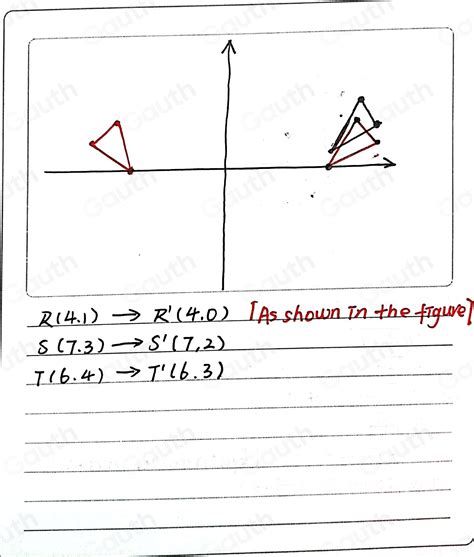 R(4.1) → R'(4.0) [As shown in the figure]
S(7.3) → S'(7,2)
T(6.4) → T'(6.3)